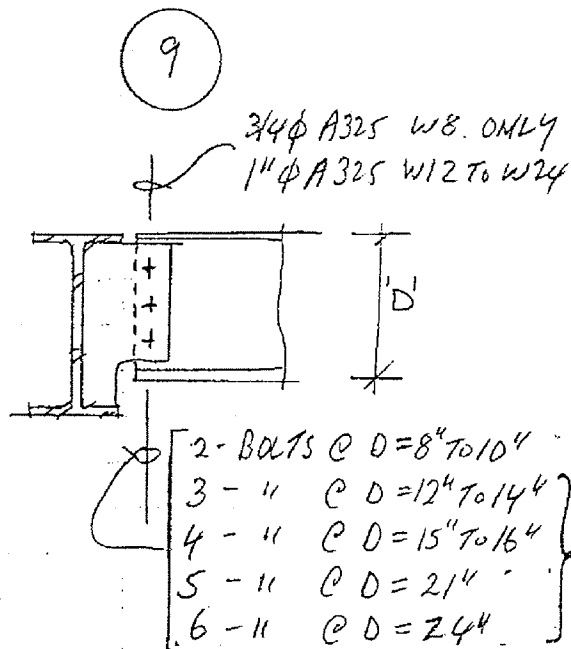 9
3/4φ A325 W8. ONLY
1"φ A325 W12 To W24
'D'
2 - BOLTS @ D = 8" To 10"
3 - " @ D = 12" To 14"
4 - " @ D = 15" To 16"
5 - " @ D = 21"
6 - " @ D = 24"